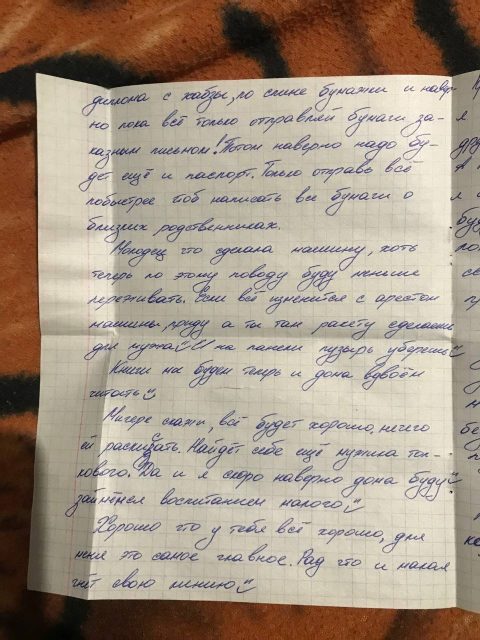 диплома с хабзы, по смене бумажки и навер-
но пока всё только отправляй бумаги за-
казным письмом! Потом наверно надо бу-
дет ещё и паспорт. Только отправь всё
побыстрее чтоб написать все бумаги о
близких родственниках.
Молодец что сделала машину, хоть
теперь по этому поводу буду меньше
переживать. Если всё изменится с арестом
машины приду а ты там ракету сделаешь
для мужа на панели пузырь уберешь
Книги мы будем теперь и дома вдвоём
читать
скажи, всё будет хорошо, нечего
ей раскисать. Найдёт себе ещё мужика тол-
кового. Да и я скоро наверно дома буду
займёмся воспитанием малого
Хорошо что у тебя всё хорошо, для
меня это самое главное. Рад что и малая
гнёт свою линию